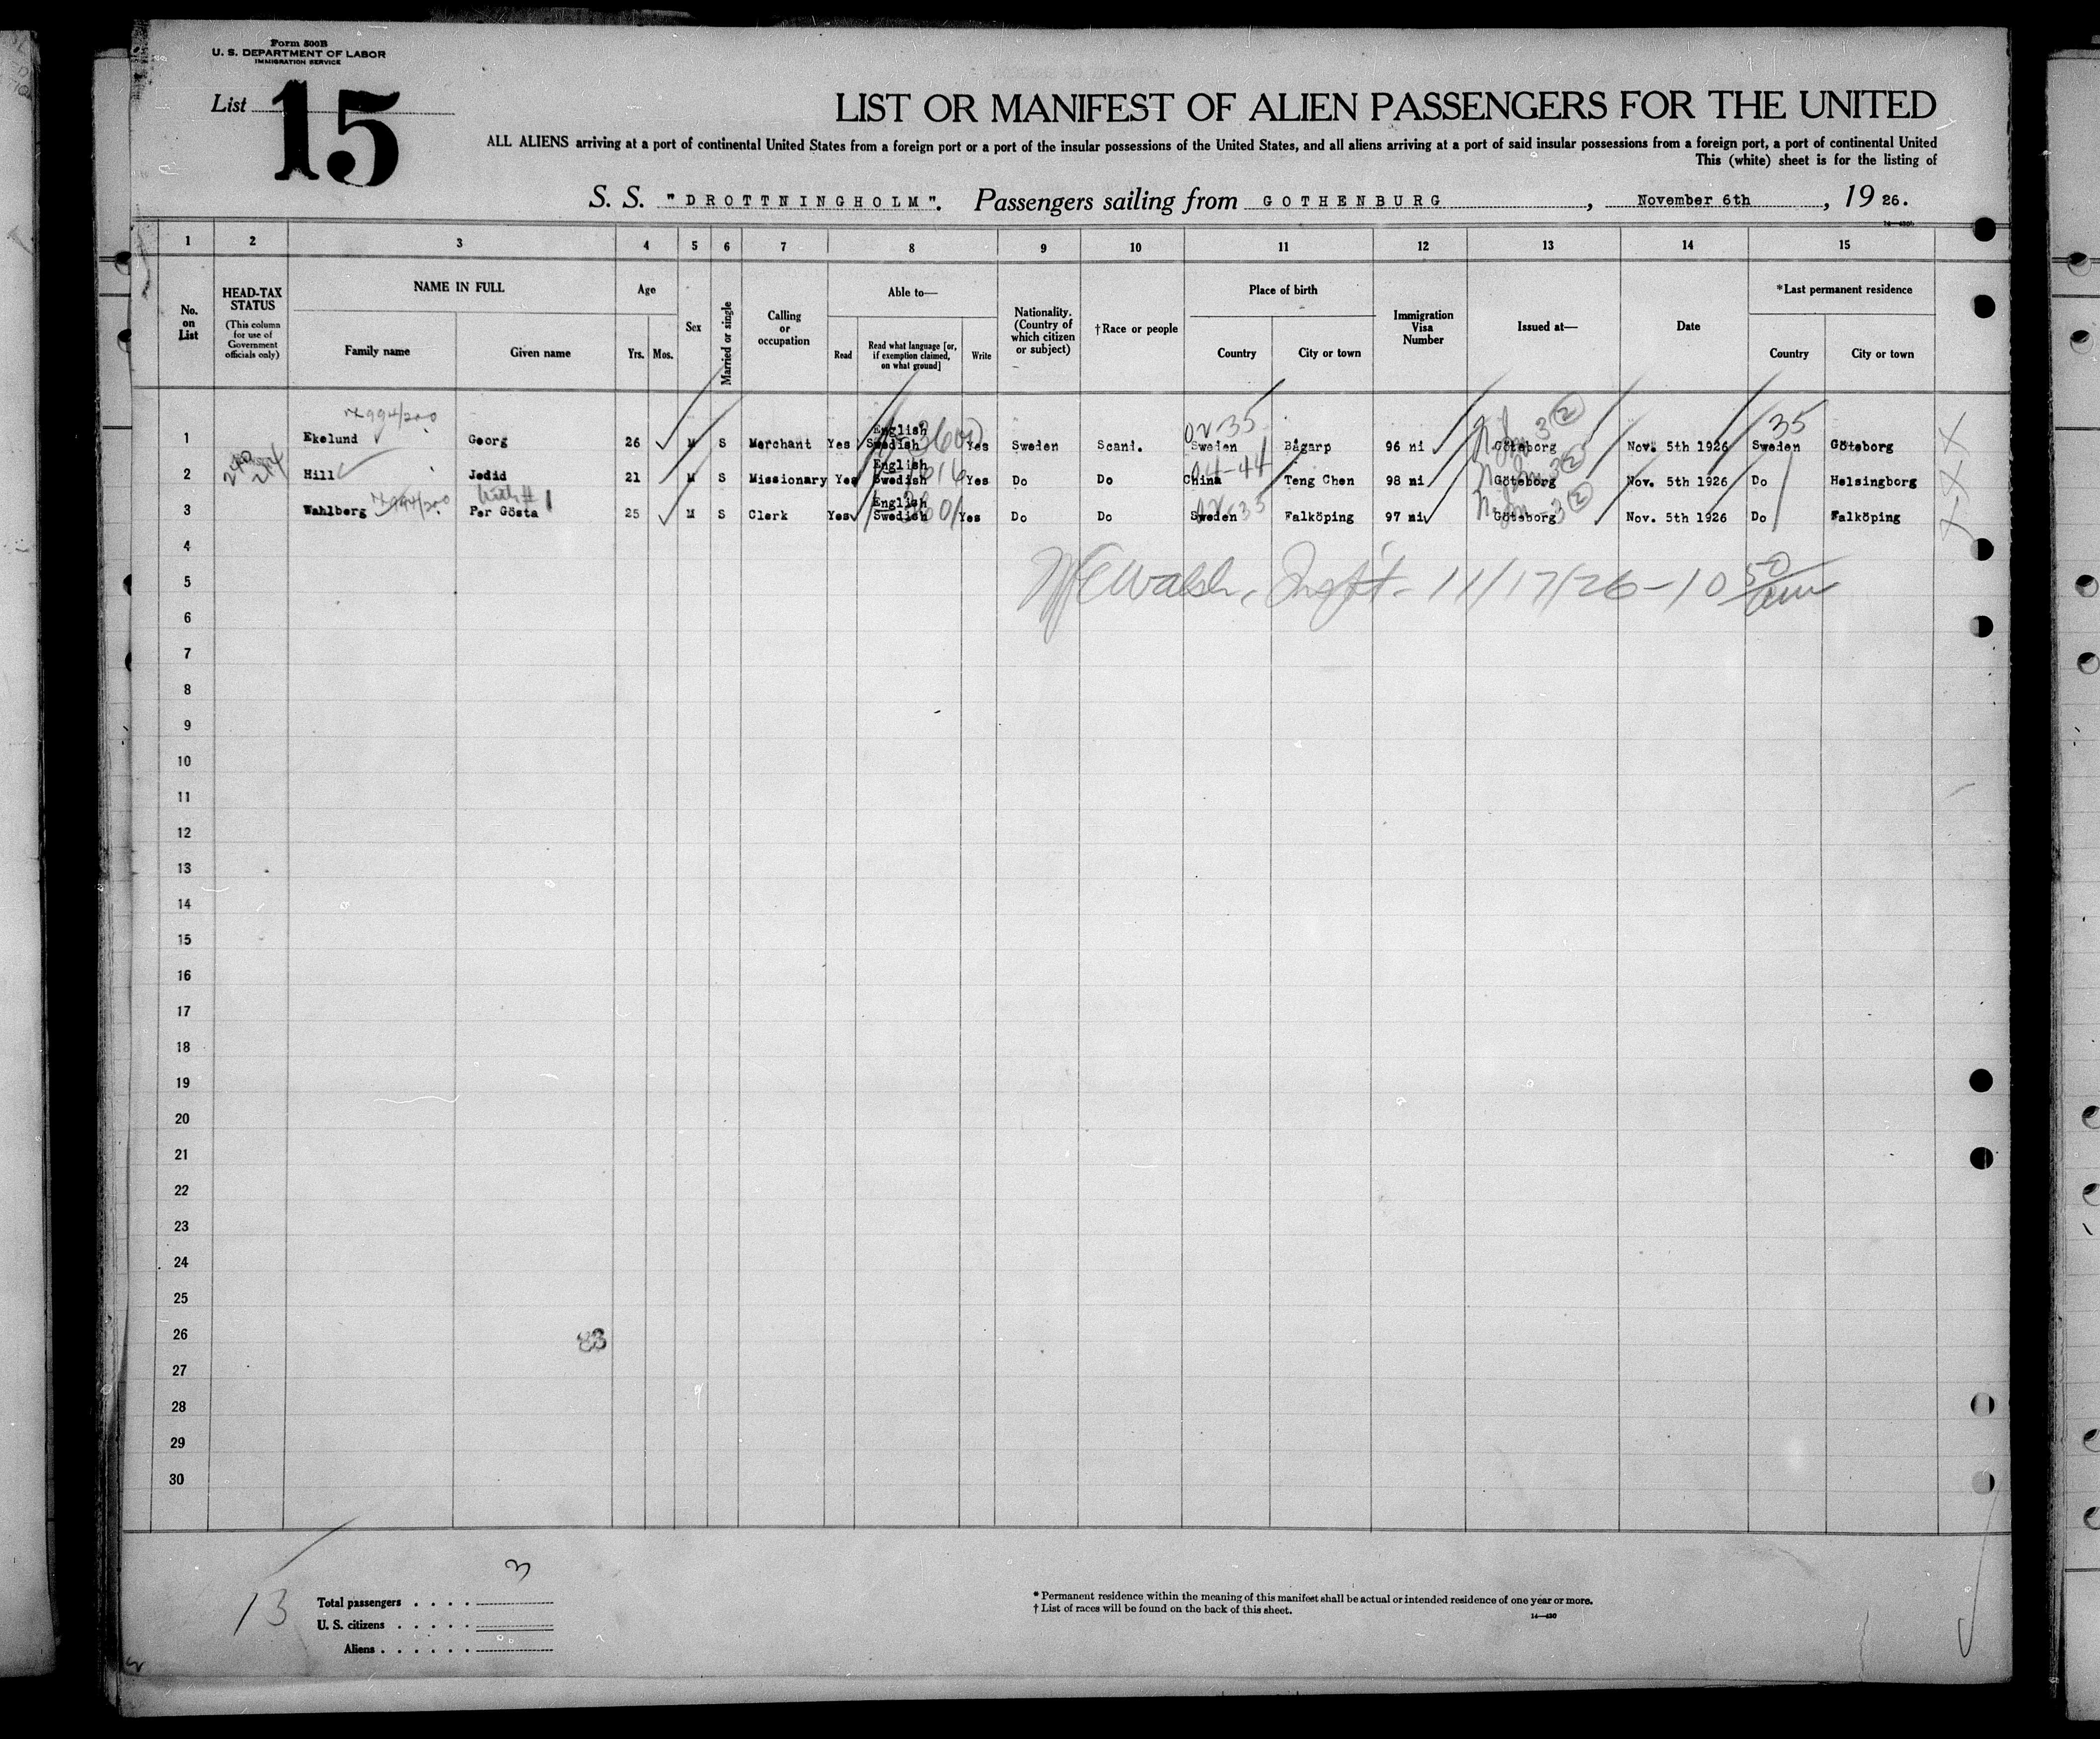 Form 500B
U. S. DEPARTMENT OF LABOR
IMMIGRATION SERVICE
List 15
LIST OR MANIFEST OF ALIEN PASSENGERS FOR THE UNITED
ALL ALIENS arriving at a port of continental United States from a foreign port or a port of the insular possessions of the United States, and all aliens arriving at a port of said insular possessions from a foreign port, a port of continental United
This (white) sheet is for the listing of
S. S. "DROTTNINGHOLM". Passengers sailing from GOTHENBURG, November 6th, 1926.
1 2 3 4 5 6 7 8 9 10 11 12 13 14 15
No. on List
HEAD-TAX STATUS
(This column for use of Government officials only)
NAME IN FULL
Family name Given name
Age
Yrs. Mos.
Sex
Married or single
Calling or occupation
Able to—
Read
Read what language [or, if exemption claimed, on what ground]
Write
Nationality. (Country of which citizen or subject)
†Race or people
Place of birth
Country City or town
Immigration Visa Number
Issued at—
Date
*Last permanent residence
Country City or town
02-35 35
1 Ekelund Georg 26 M S Merchant Yes English Swedish Yes Sweden Scand. Sweden Bågarp 96 ni Göteborg Nov. 5th 1926 Sweden Göteborg X
04-44
2 Hill Jedid 21 M S Missionary Yes English Swedish Yes Do Do China Teng Chen 98 ni Göteborg Nov. 5th 1926 Do Helsingborg X
with # 1
3 Wahlberg Per Gösta 25 M S Clerk Yes English Swedish Yes Do Do Sweden Falköping 97 ni Göteborg Nov. 5th 1926 Do Falköping X
4
5 Walsh, Insp't. 11/17/26 - 10 50 am
6
7
8
9
10
11
12
13
14
15
16
17
18
19
20
21
22
23
24
25
26
83
27
28
29
30
3
13
Total passengers . . . .
U. S. citizens . . . . .
Aliens . . . . . .
* Permanent residence within the meaning of this manifest shall be actual or intended residence of one year or more.
† List of races will be found on the back of this sheet.
14—430